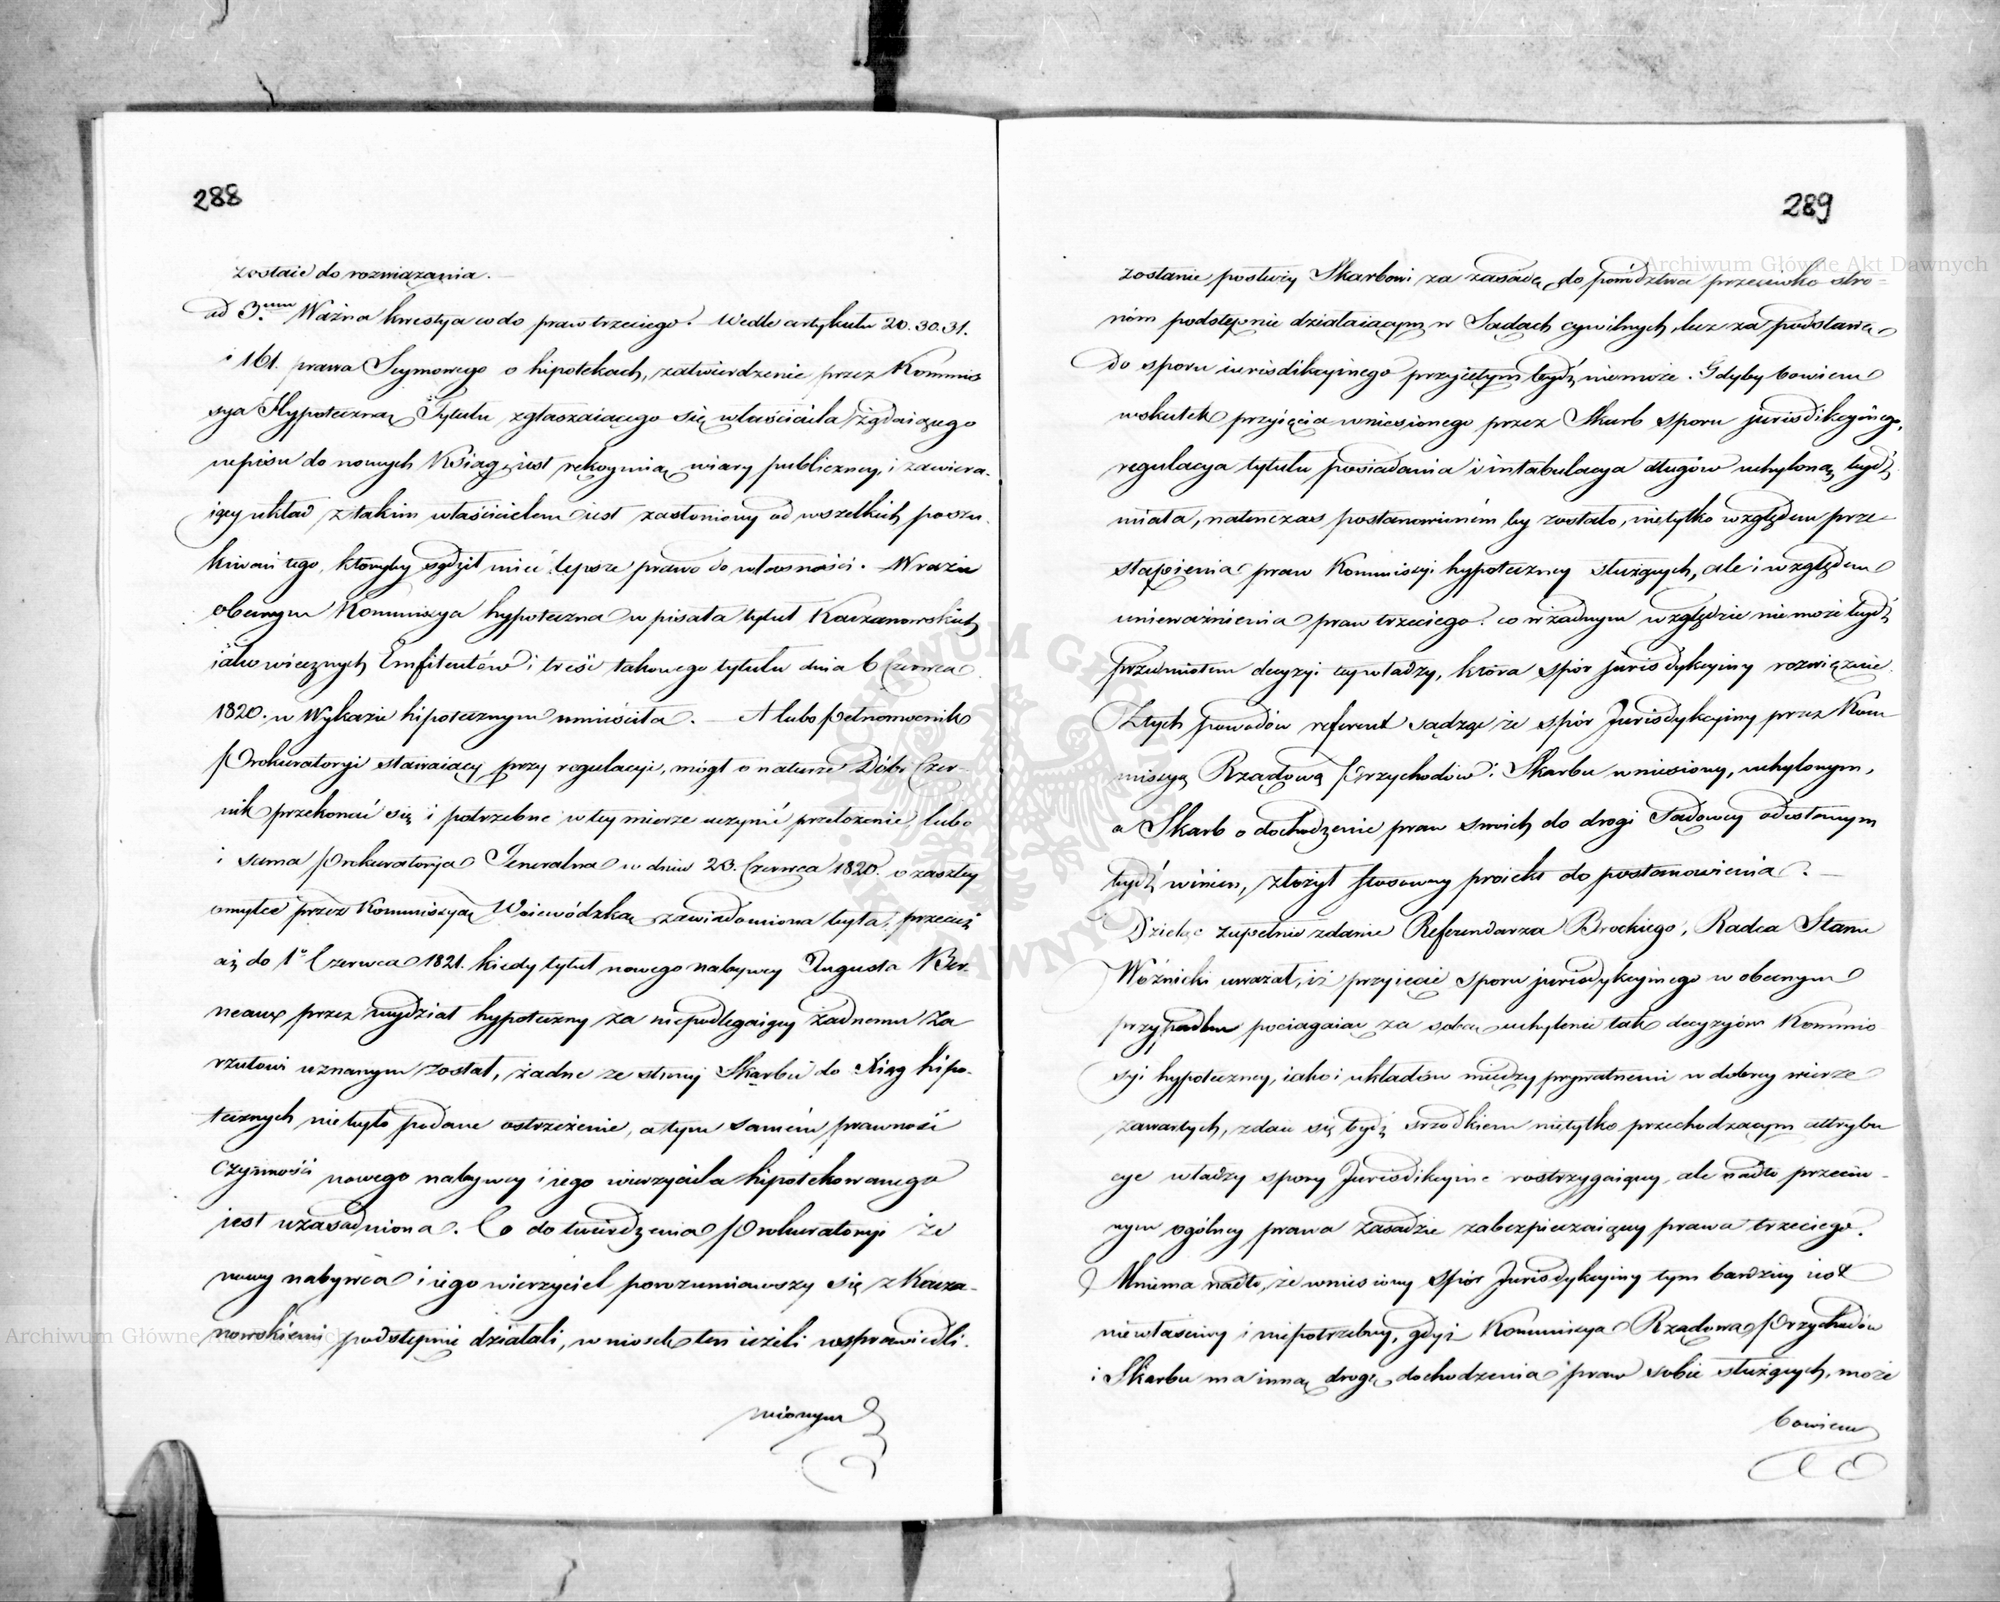 288
zostaie do rozwiązania. —
ad 3um Ważna kwestya co do praw trzeciego. Wedle artykułu 20. 30. 31.
i 161. prawa Seymowego o hipotekach, zatwierdzenie przez Kommis
syą Hypoteczną Tytułu zgłaszaiącego się właściciela, żądaiącego
wpisu do nowych Xsiąg iest rękoymią wiary publiczney, i zawiera-
iący układ z takim właścicielem iest zasłoniony od wszelkich poszu-
kiwań tego, któryby sądził mieć lepsze prawo do własności. W razie
obecnym Kommissya hypoteczna wpisała tytuł Kaczanowskich
iako wiecznych Emfiteutów i treść takowego tytułu dnia 6 Czerwca
1820. w Wykazie hipotecznym umieściła. — A lubo pełnomocnik
Prokuratoryi stawaiący przy regulacyi, mógł o naturze Dóbr Czer-
nik przekonać się i potrzebne w tey mierze uczynić przełożenie, lubo
i sama Prokuratorya Jeneralna w dniu 23. Czerwca 1820. o zaszłey
omyłce przez Kommissyą Woiewódzką zawiadomiona była, przecież
aż do 1o Czerwca 1821. kiedy tytuł nowego nabywcy Augusta Ber-
neaux przez wydział hypoteczny za niepodlegaiący żadnemu za
rzutowi uznanym został, żadne ze strony Skarbu do Xiąg hipo-
tecznych nie było podane ostrzeżenie, a tym samem prawność
czynności nowego nabywcy i iego wierzyciela hipotekowanego
iest uzasadniona. Co do twierdzenia Prokuratoryi że
nowy nabywca i iego wierzyciel porozumiawszy się z Kacza-
nowskiemi podstępnie działali, wniosek ten ieżeli usprawiedli-
wionym
289
zostanie posłuży Skarbowi za zasadę do powództwa przeciwko stro-
nom podstępnie działaiącym w Sądach cywilnych, lecz za podstawę
do sporu iurisdikcyinego przyiętym bydź niemoże. Gdyby bowiem
wskutek przyięcia wniesionego przez Skarb sporu jurisdikcyinego,
regulacya tytułu posiadania i intabulacya długów uchyloną bydź
miała, natenczas postanowionem by zostało, nietylko względem prze-
stąpienia praw Kommissyi hypoteczney służących, ale i względem
unieważnienia praw trzeciego, co w żadnym względzie nie może bydź
przedmiotem decyzyi tey władzy, która spór jurisdykcyiny rozwiązuie.
Z tych powodów referent sądząc że spór Jurisdykcyiny przez Kom
missyą Rządową Przychodów i Skarbu wniesiony, uchylonym,
a Skarb o dochodzenie praw swoich do drogi Sądowey odesłanym
bydź winien, złożył stosowny proiekt do postanowienia. —
Dzieląc zupełnie zdanie Referendarza Brockiego, Radca Stanu
Woźnicki uważał, iż przyięcie sporu jurisdykcyinego w obecnym
przypadku pociągaiąc za sobą uchylenie tak decyzyów Kommis
syi hypoteczney, iako i układów między prywatnemi w dobrey wierze
zawartych, zdaie się bydź srzodkiem nietylko przechodzącym attrybu
cye władzy spory Jurisdikcyine rostrzygaiącey, ale nadto przeciw-
nym ogólney prawa zasadzie zabezpieczaiącey prawa trzeciego.
Mniema nadto, że wniesiony spór Jurisdykcyiny tym bardziey iest
niewłaściwy i niepotrzebny, gdyż Kommissya Rządowa Przychodów
i Skarbu ma inną drogę dochodzenia praw sobie służących, może
bowiem